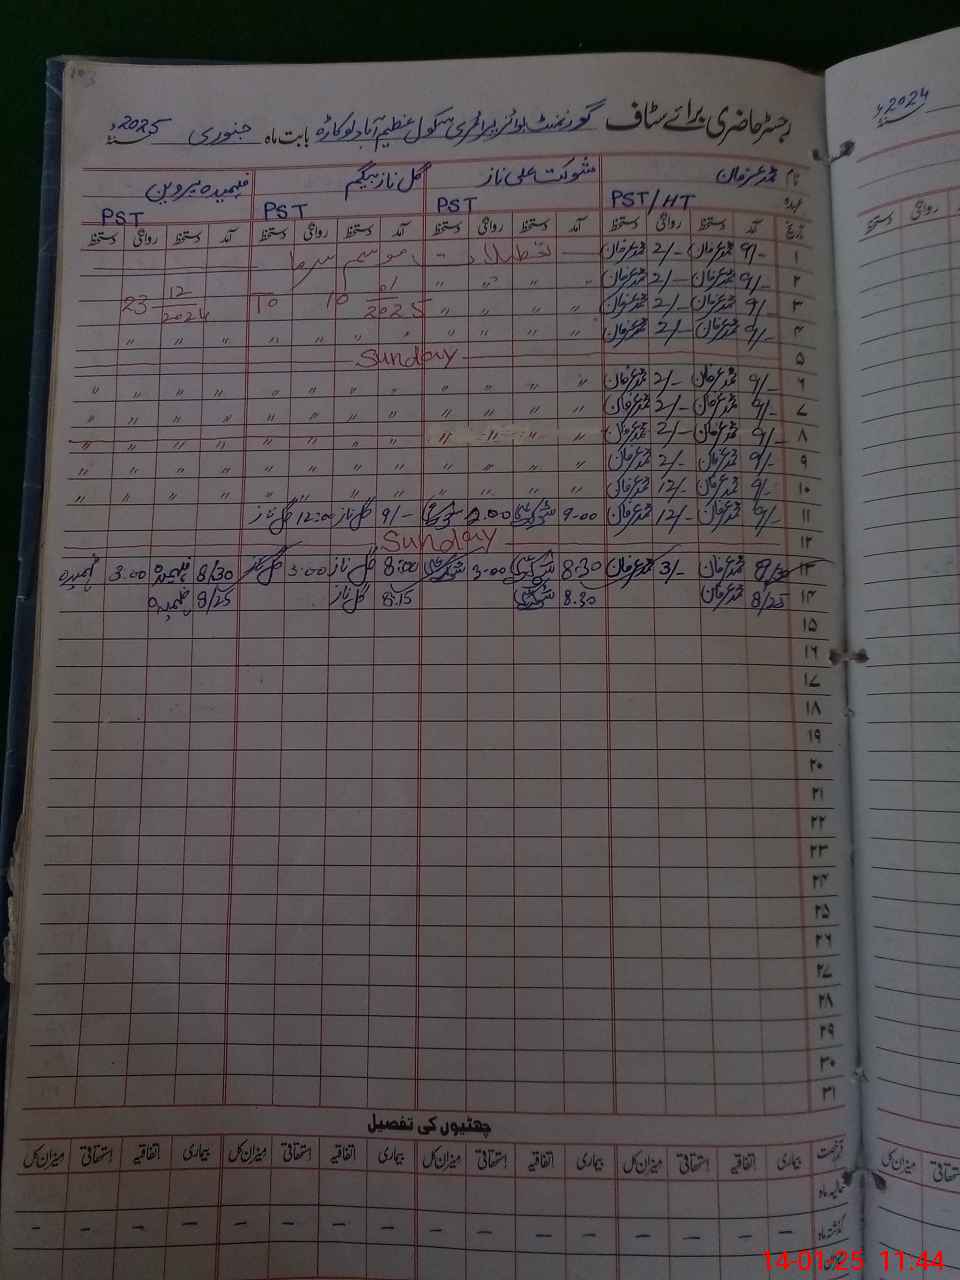 103
رجسٹر حاضری برائے سٹاف گورنمنٹ بوائز پرائمری سکول عظیم آباد لوکاڑہ بابت ماہ جنوری 2025ء
2024ء
نام محمد عرفان شوکت علی ناز گل ناز بیگم فہمیدہ پروین
عہدہ PST/HT PST PST PST
تاریخ آمد دستخط روانگی دستخط آمد دستخط روانگی دستخط آمد دستخط روانگی دستخط آمد دستخط روانگی دستخط
روانگی دستخط
۱ 9/- محمد عرفان 2/- محمد عرفان تعطیلات موسم سرما
۲ 9/- محمد عرفان 2/- محمد عرفان 〃 〃 〃 〃
۳ 9/- محمد عرفان 2/- محمد عرفان 〃 〃 〃 〃 23 12/2024 To 10 01/2025
۴ 9/- محمد عرفان 2/- محمد عرفان 〃 〃 〃 〃 〃 〃 〃 〃 〃 〃 〃 〃
۵ Sunday
۶ 9/- محمد عرفان 2/- محمد عرفان 〃 〃 〃 〃 〃 〃 〃 〃 〃 〃 〃 〃
۷ 9/- محمد عرفان 2/- محمد عرفان 〃 〃 〃 〃 〃 〃 〃 〃 〃 〃 〃 〃
۸ 9/- محمد عرفان 2/- محمد عرفان 〃 〃 〃 〃 〃 〃 〃 〃 〃 〃 〃 〃
۹ 9/- محمد عرفان 2/- محمد عرفان 〃 〃 〃 〃 〃 〃 〃 〃 〃 〃 〃 〃
۱۰ 9/- محمد عرفان 12/- محمد عرفان 〃 〃 〃 〃 〃 〃 〃 〃 〃 〃 〃 〃
۱۱ 9/- محمد عرفان 12/- محمد عرفان 9-00 2.00 9/- گل ناز 12:00 گل ناز
۱۲ Sunday
۱۳ 8/30 محمد عرفان 3/- محمد عرفان 8.30 3-00 8:00 گل ناز 3:00 گل ناز 8/30 فہمیدہ 3:00 فہمیدہ
۱۴ 8/25 محمد عرفان 8.30 8:15 گل ناز 8/25 فہمیدہ
۱۵
۱۶
۱۷
۱۸
۱۹
۲۰
۲۱
۲۲
۲۳
۲۴
۲۵
۲۶
۲۷
۲۸
۲۹
۳۰
۳۱
چھٹیوں کی تفصیل
رخصت بیماری اتفاقیہ استحقاقی میزان کل بیماری اتفاقیہ استحقاقی میزان کل بیماری اتفاقیہ استحقاقی میزان کل بیماری اتفاقیہ استحقاقی میزان کل
استحقاقی میزان کل
حالیہ ماہ
گذشتہ ماہ - - - - - - - - - - - - - - - -
14-01-25 11.44